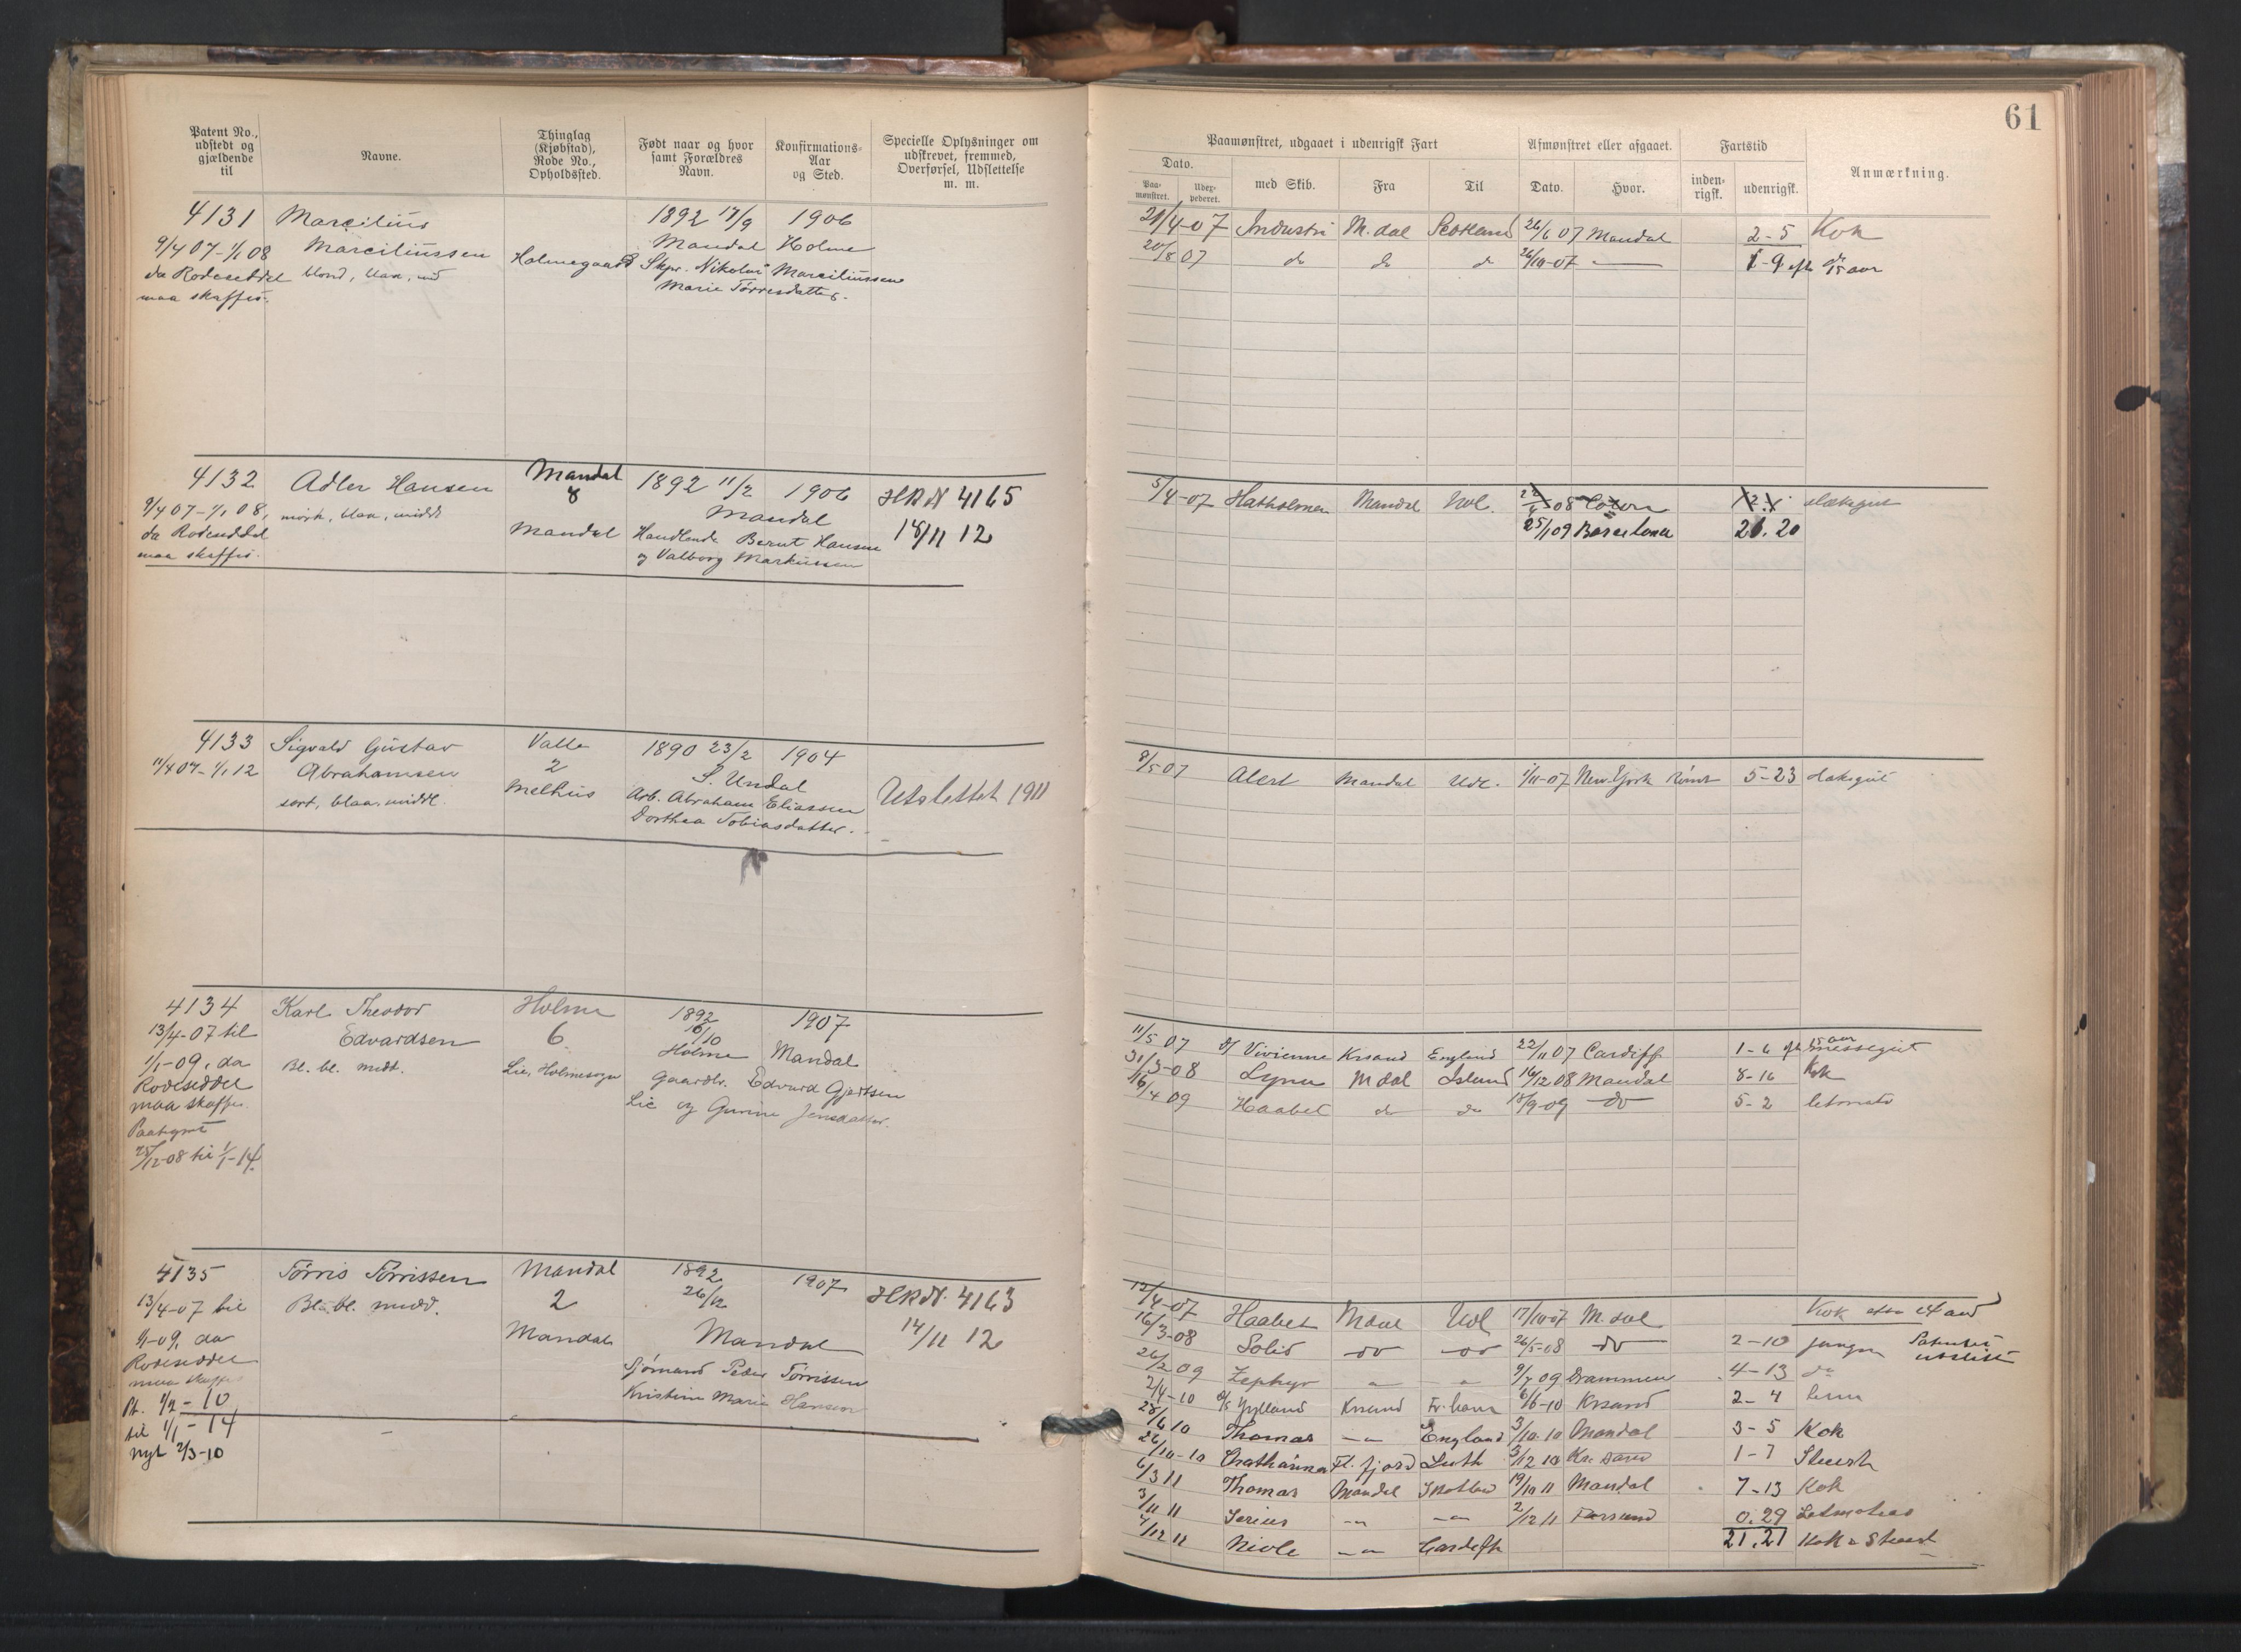 61
Patent No., udstedt og gjældende til
Navne.
Thinglag (Kjøbstad), Rode No., Opholdssted.
Født naar og hvor samt Forældres Navn.
Konfirmations-Aar og Sted.
Specielle Oplysninger om udskrevet, fremmed, Overførsel, Udslettelse m. m.
Paamønstret, udgaaet i udenrigsk Fart
Afmønstret eller afgaaet.
Fartstid
Anmærkning.
Dato.
Paa-mønstret.
Uder-pederet.
med Skib.
Fra
Til
Dato.
Hvor.
inden-rigsk.
udenrigsk.
4131 Marcilius 1892 17/9 1906
9/4 07-1/1 08 Marciliussen Holmegaard Mandal Holme
da Rodeseddel blond, blaa, md Skpr. Nikolai Marciliussen
maa skaffes. Marie Tørresdatter.
21/4-07 Industri M.dal Scotland 26/6 07 Mandal 2-5 Kok
20/8 07 do do do 26/10-07 1-9 efte 15 aar
4132 Adler Hansen Mandal 8 1892 11/2 1906 HRN 4165
9/4 07-1/1 08, mørk, blaa, midd Mandal
da Rodeseddel Mandal Handlende Bernt Hansen 18/11 12
maa skaffes. og Valborg Markussen
5/4-07 Hatholmen Mandal Udl. 08 dæksgut
25/1 09 Barcelona 20
4133 Sigvald Gustav Valle 1890 23/2 1904
11/4 07-1/1 12 Abrahamsen 2 S. Undal
sort, blaa, middl. Melhus Arb. Abraham Eliassen Utslettet 1911
Dorthea Tobiasdatter.
9/5 07 Alert Mandal Udl. 1/11-07 New York rømt 5-23 dæksgut
4134 Karl Theodor Holme 1892 1907
13/4-07 til Edvardsen 6 16/10
1/1-09, da Bl. bl. midt. Lie, Holmesogn Holme Mandal
Rodeseddel Gaardbr. Edvard Gjertsen
maa skaffes Lie og Gurine Jensdatter.
Paategnet
/12-08 til 1/1-14.
11/5 07 Vivienne Krsand England 22/11 07 Cardiff 1-6 15 aar messegut
31/3-08 Lyna Mdal Island 16/12 08 Mandal 8-16 Kok
16/4 09 Haabet do do 18/9-09 do 5-2 letmato
4135 Tørris Tørrissen Mandal 1892 1907 HRN. 4163
13/4-07 til Bl. bl. midd. 2 26/12
1/1-09, da Mandal Mandal 14/11 12
Rodeseddel Sjømand Peder Tørrissen
maa skaffes Kristine Marie Hansen
Pt. 1/2-10
til 1/1-14
nyt 2/3-10
12/4-07 Haabet Mdal Udl 17/10 07 M.dal Kok
16/3-08 Solid do do 26/5-08 do 2-10 jungm
26/2 09 Zephyr 9/7 09 Drammen 4-13 do
2/4-10 Jylland Krsand 6/6-10 Krsand 2-4
28/6 10 Thomas England 3/10-10 Mandal 3-5 Kok
26/10-10 3/12 10 1-7
6/3 11 Thomas Mandal 19/10 11 Mandal 7-13 Kok
3/11 11 Serius 2/12 11 Farsund 0.29 Letmatros
4/12 11 21.21